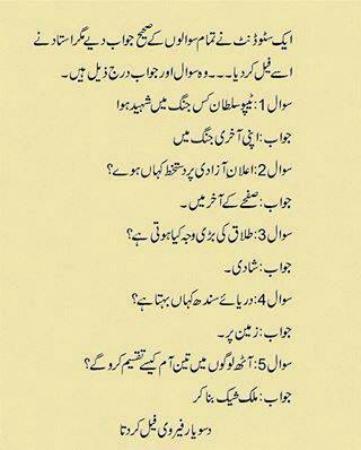 ایک سٹوڈنٹ نے تمام سوالوں کے صحیح جواب دیے مگر استاد نے
اسے فیل کر دیا۔۔۔ وہ سوال اور جواب درج ذیل ہیں۔
سوال 1: ٹیپو سلطان کس جنگ میں شہید ہوا
جواب: اپنی آخری جنگ میں
سوال 2: اعلان آزادی پر دستخط کہاں ہوے؟
جواب: صفحے کے آخر میں۔
سوال 3: طلاق کی بڑی وجہ کیا ہوتی ہے؟
جواب: شادی۔
سوال 4: دریائے سندھ کہاں بہتا ہے؟
جواب: زمین پر۔
سوال 5: آٹھ لوگوں میں تین آم کیسے تقسیم کرو گے؟
جواب: ملک شیک بنا کر
دسو یار فیر وی فیل کر دتا